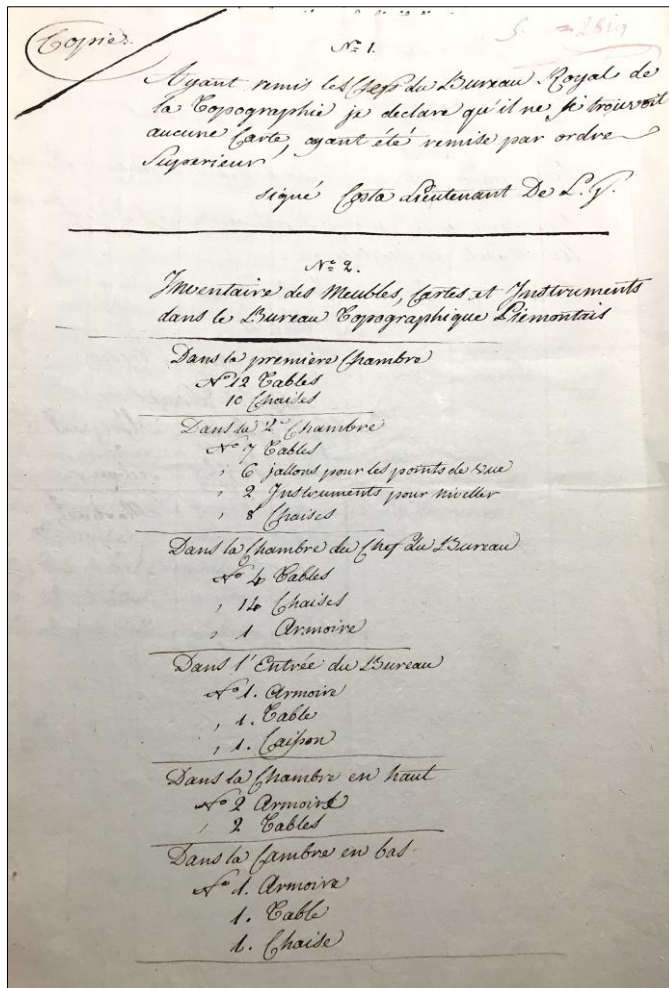 Copie.
N.º 1.
Ayant remis les Clefs du Bureau Royal de
la Topographie je declare qu'il ne s'i trouvoit
aucune Carte, ayant été remise par ordre
Superieur
signé Costa Lieutenant De L. G.
N.º 2.
Inventaire des Meubles, Cartes et Instruments
dans le Bureau Topographique Piémontais
Dans la premiere Chambre
N.º 12 Tables
10 Chaises
Dans la 2.e Chambre
N.º 7 Tables
, 6 jallons pour les points de vue
, 2 Instruments pour niveller
, 8 Chaises
Dans la Chambre du Chef du Bureau
N.º 4 Tables
, 14 Chaises
, 1 Armoire
Dans l'Entrée du Bureau
N.º 1. Armoire
, 1. Table
, 1. Caisson
Dans la Chambre en haut
N.º 2 Armoire
, 2 Tables
Dans la Cambre en bas
N.º 1. Armoire
1. Table
1. Chaise